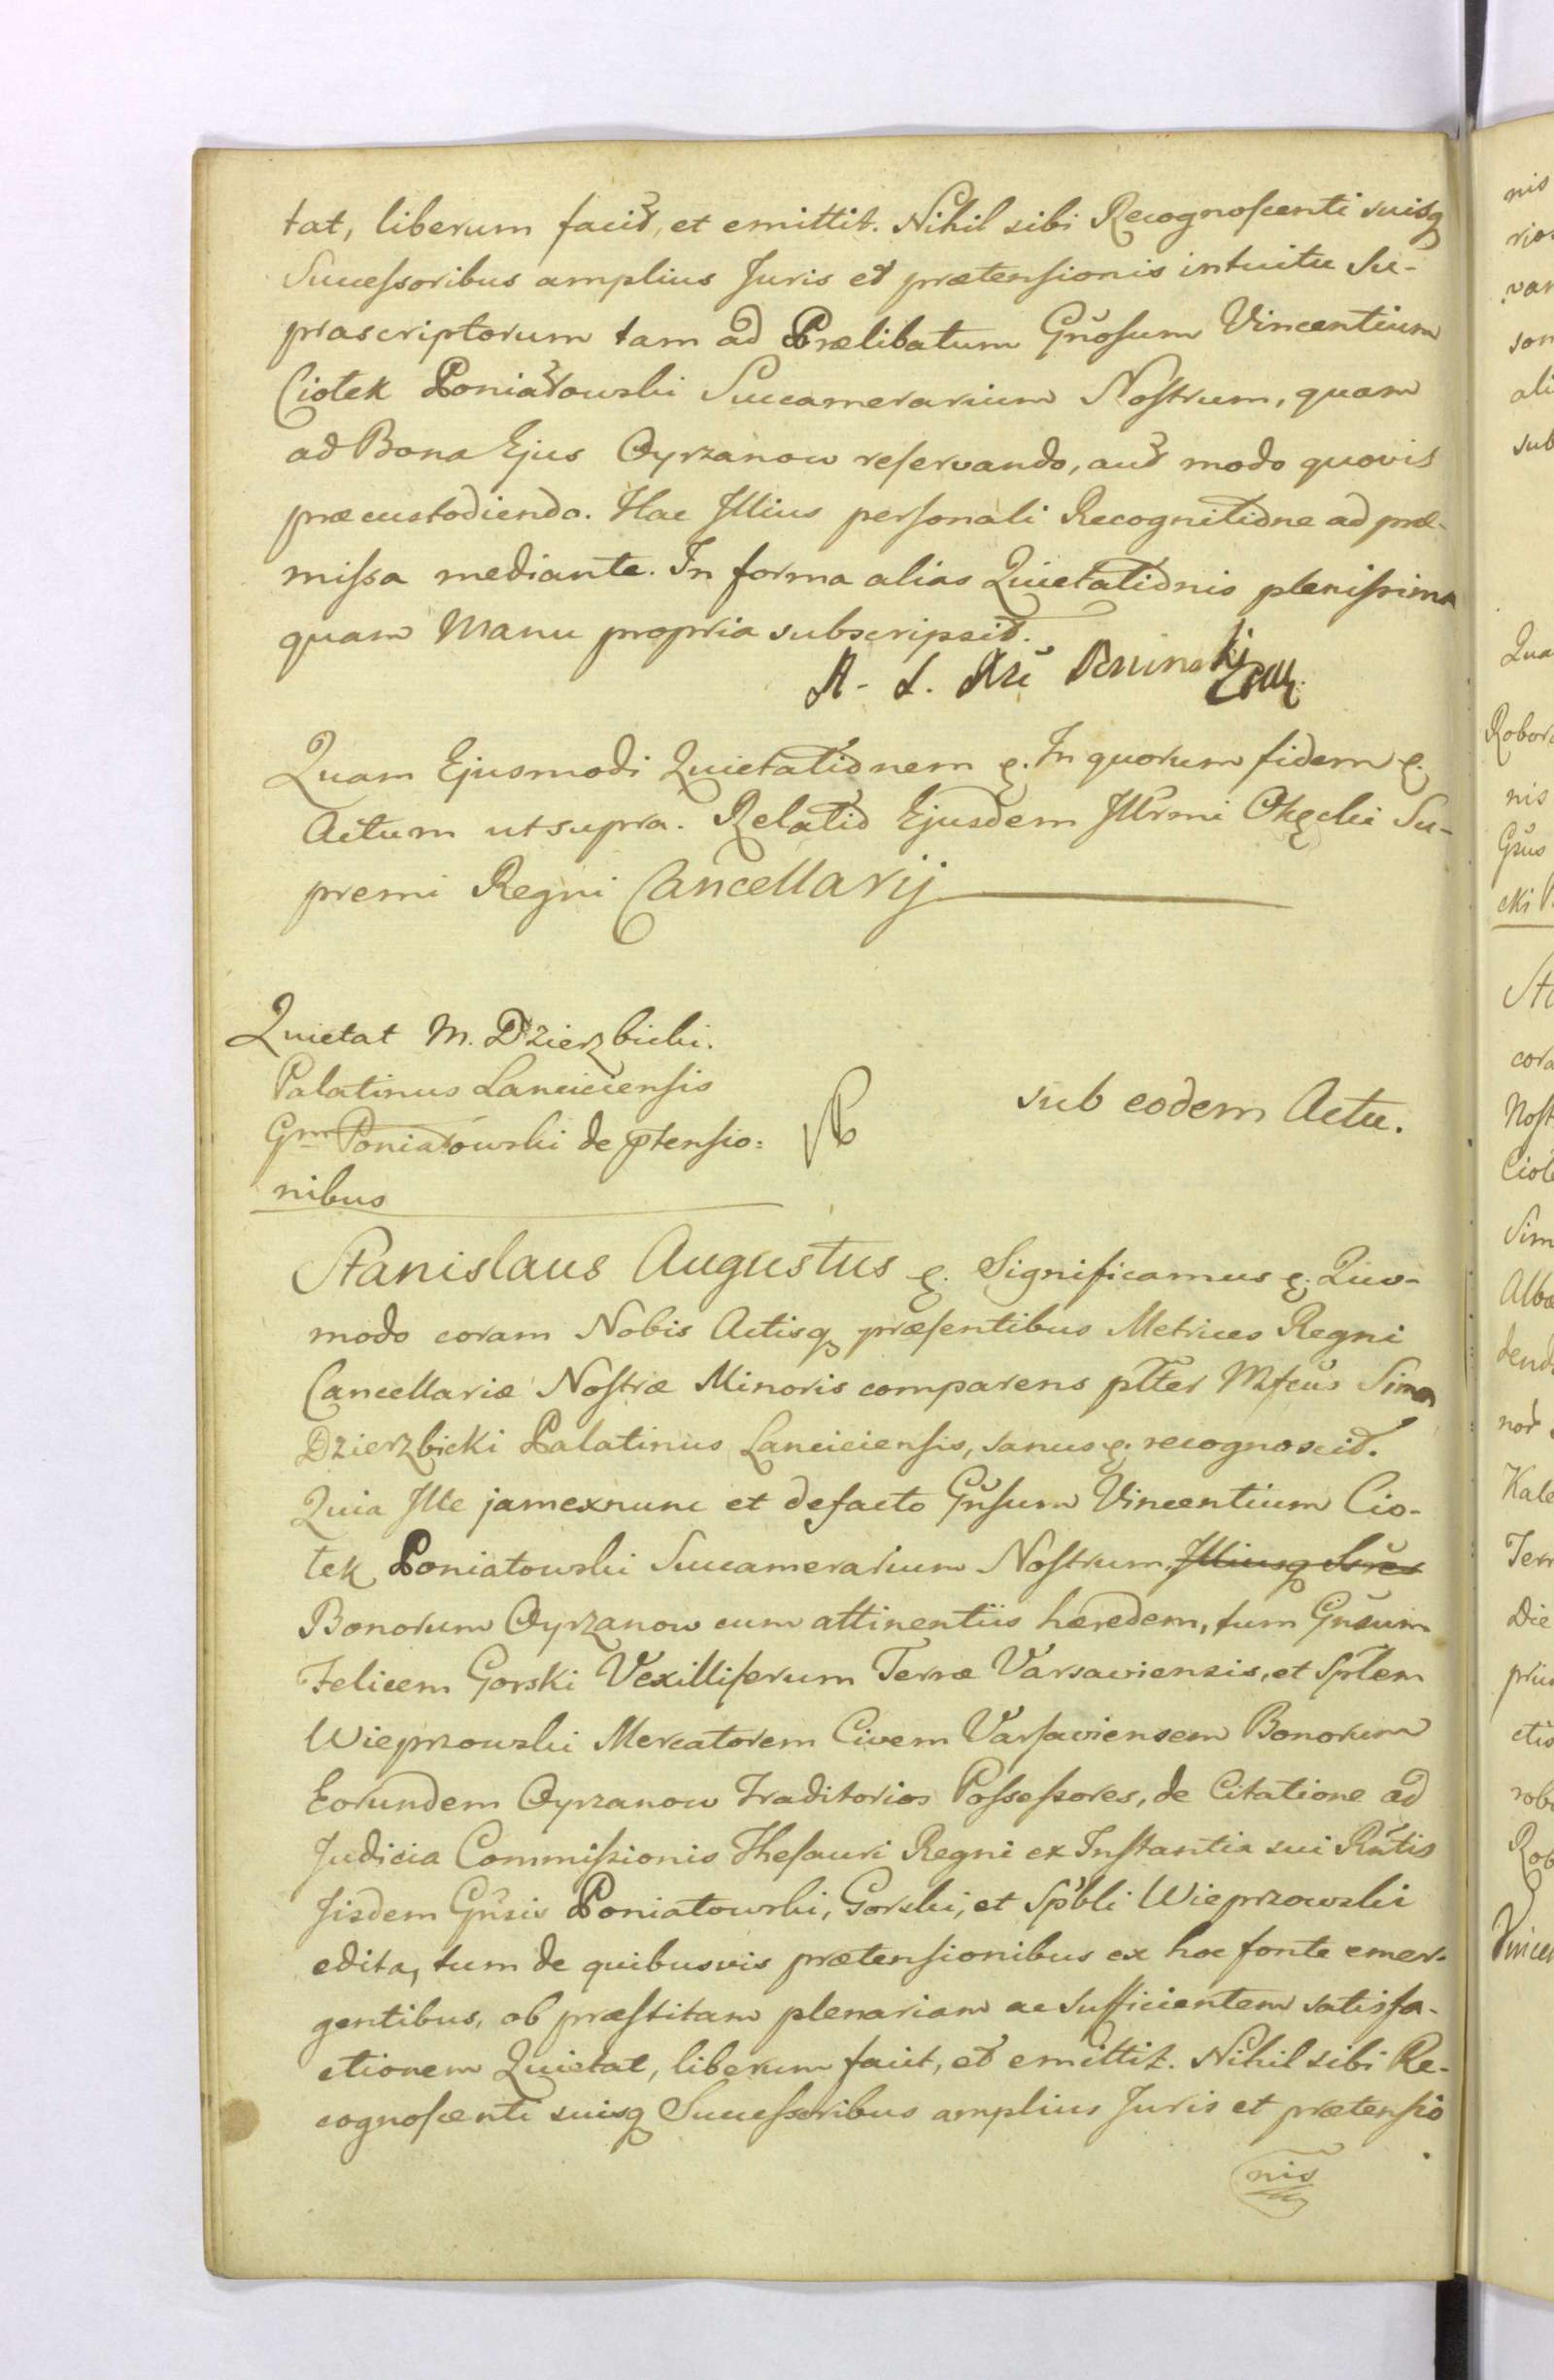 tat, liberum facit, et emittit. Nihil sibi Recognoscenti suisq
Successoribus amplius Juris et prætensionis intuitu Su-
prascriptorum tam ad Prælibatum Gñosum Vincentium
Ciołek Poniatowski Succamerarium Nostrum, quam
ad Bona Ejus Oyrzanow reservando, aut modo quovis
præcustodiendo. Hac Illius personali Recognitione ad præ-
missa mediante. In forma alias Quietationis plenissima
quam Manu propria subscripsit.
Quam Ejusmodi Quietationem ꝛ. In quorum fidem ꝛ.
Actum ut supra. Relatio Ejusdem Illrmi Okęcki Su-
premi Regni Cancellarij
Quietat M. Dzierzbicki.
Palatinus Lanciciensis
Gm Poniatowski de ptensio=
nibus
sub eodem Actu.
Stanislaus Augustus ꝛ. Significamus ꝛ. Quo-
modo coram Nobis Actisq præsentibus Metrices Regni
Cancellariæ Nostræ Minoris comparens plter Mfcus Simon
Dzierzbicki Palatinus Lanciciensis, sanus ꝛ. recognoscit.
Quia Ille jamexnunc et defacto Gnsum Vincentium Cio-
łek Poniatowski Succamerarium Nostrum, Illiusq Sres
Bonorum Oyrzanow cum attinentiis hæredem, tum Gnsum
Felicem Gorski Vexilliferum Terræ Varsaviensis, et Sptem
Wieprzowski Mercatorem Civem Varsaviensem Bonorum
Eorundem Oyrzanow traditorios Possessores, de Citatione ad
Judicia Commissionis Thesauri Regni ex Instantia sui Rñtis
Jisdem Gñsis Poniatowski, Gorski, et Spbli Wieprzowski
edita, tum de quibusvis prætensionibus ex hoc fonte emer-
gentibus, ob præstitam plenariam ac sufficientem satisfa-
ctionem Quietat, liberum facit, et emittit. Nihil sibi Re-
cognoscenti suisq Successoribus amplius Juris et prætensio
nis